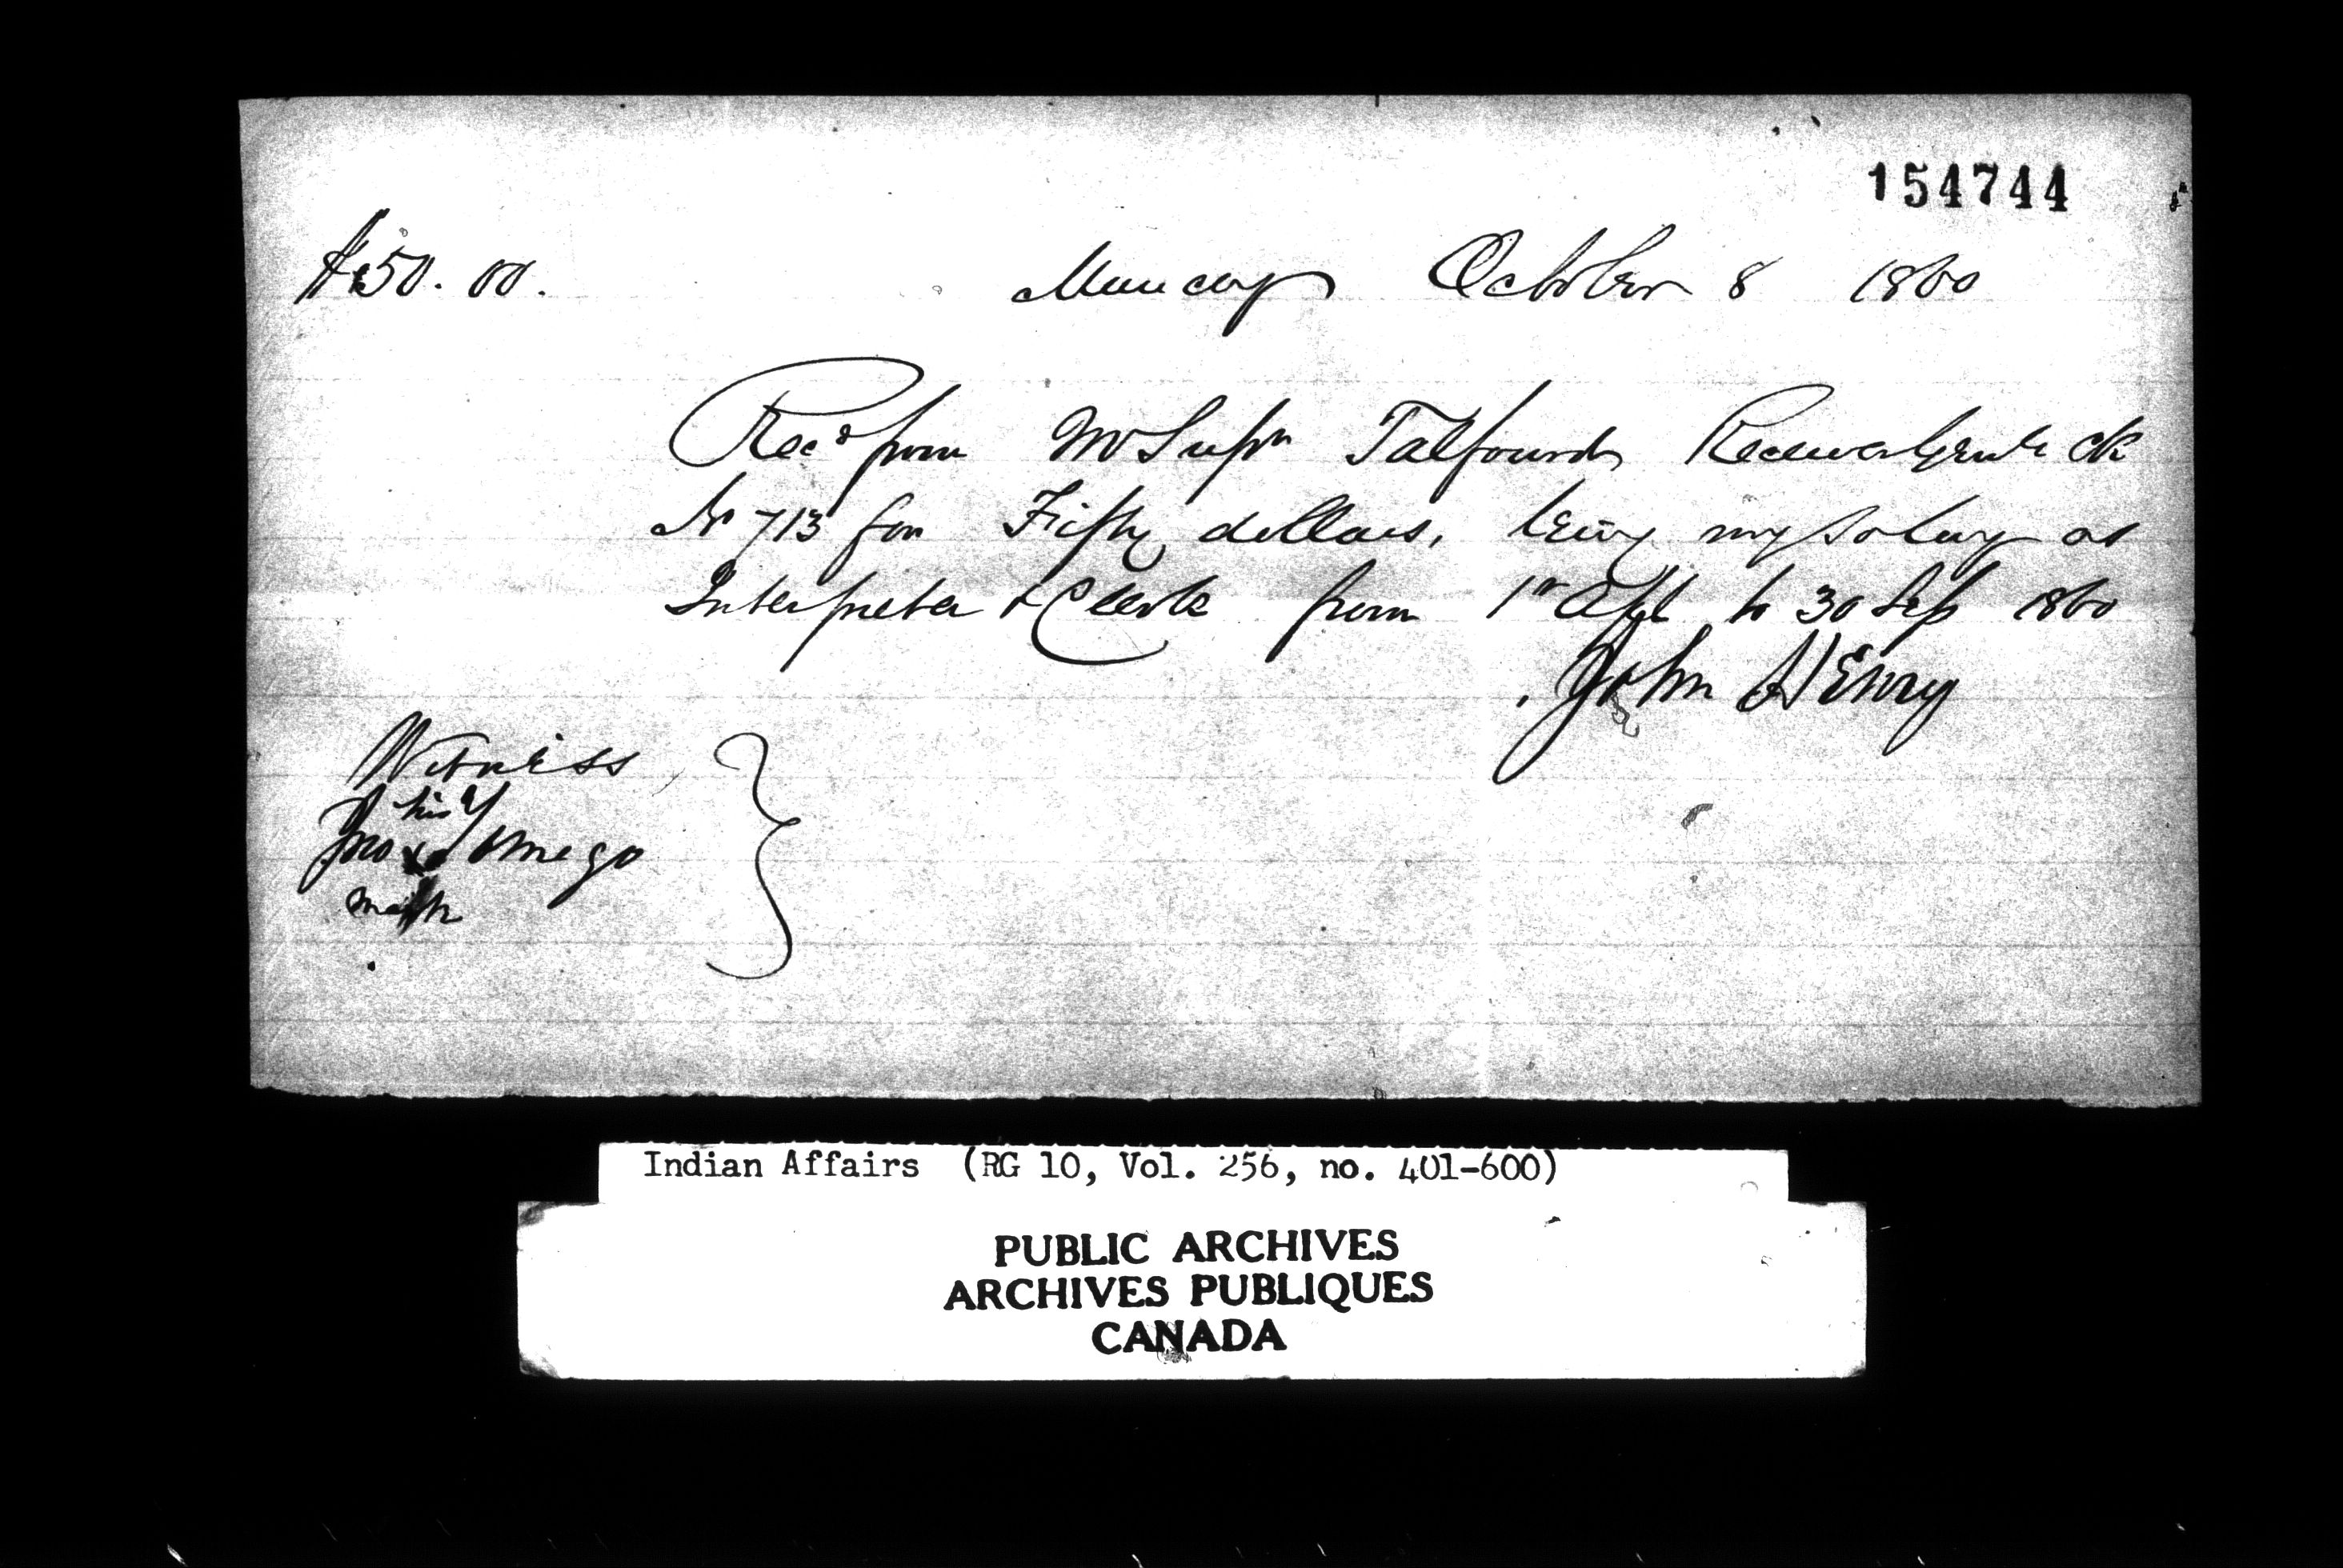 154744
$50.00.
Muncey October 8 1860
Recd from Mr Supt Talfourd Receiver Genls ck
No 713 for Fifty dollars, being my salary as
Interpreter & Clerk from 1st Apl to 30 Sep 1860
John Henry
Witness
his
Jno x
mark
Indian Affairs (RG 10, Vol. 256, no. 401-600)
PUBLIC ARCHIVES
ARCHIVES PUBLIQUES
CANADA